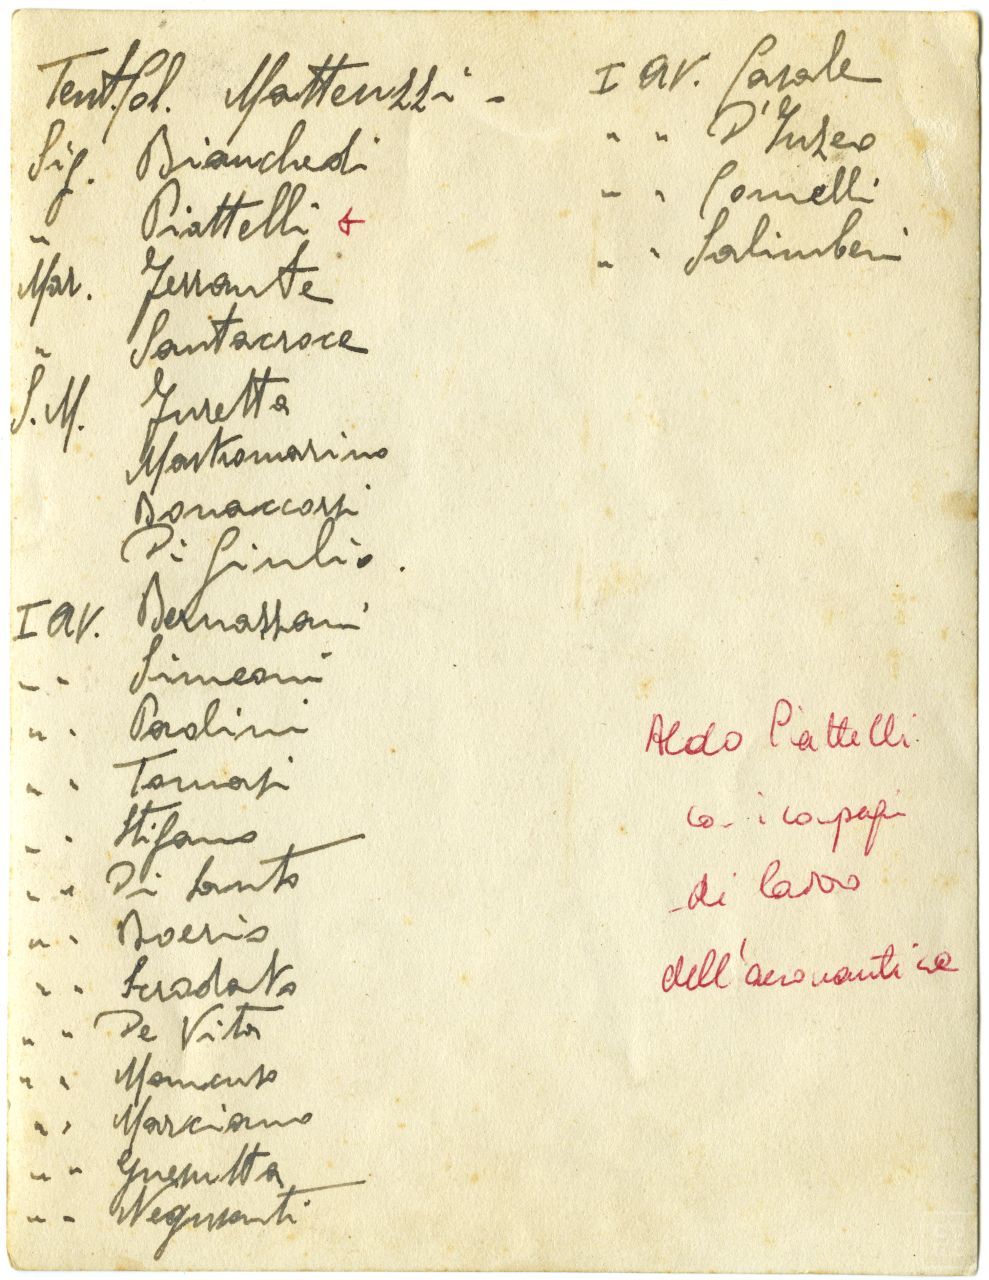 Tent. Col. Matteuzzi -
Sig. Bianchedi
" Piattelli +
Mar. Ferrante
" Santacroce
S.M. Furetta
Mastromarino
Bonaccorsi
Di Giulio.
I av. Bernazzani
" " Simeoni
" " Paolini
" " Tomasi
" " Stifano
" " Di Santo
" " Boerio
" " Scrodato
" " De Vita
" " Mancuso
" " Marciano
" "
" " Negusanti
I av. Casale
" " D'Inzeo
" " Comelli
" " Salimbeni
Aldo Piattelli
con i compagni
di lavoro
dell'aeronautica